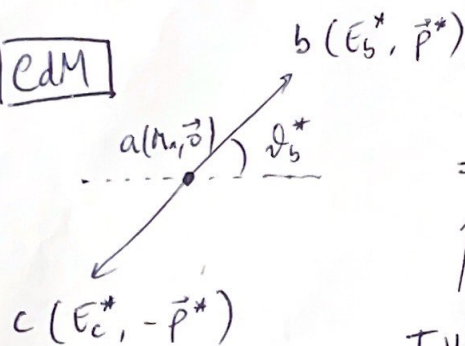 CdM
b (E_b^*, \vec{p}^*)
a(M_a, \vec{0})
ϑ_b^*
c (E_c^*, -\vec{p}^*)